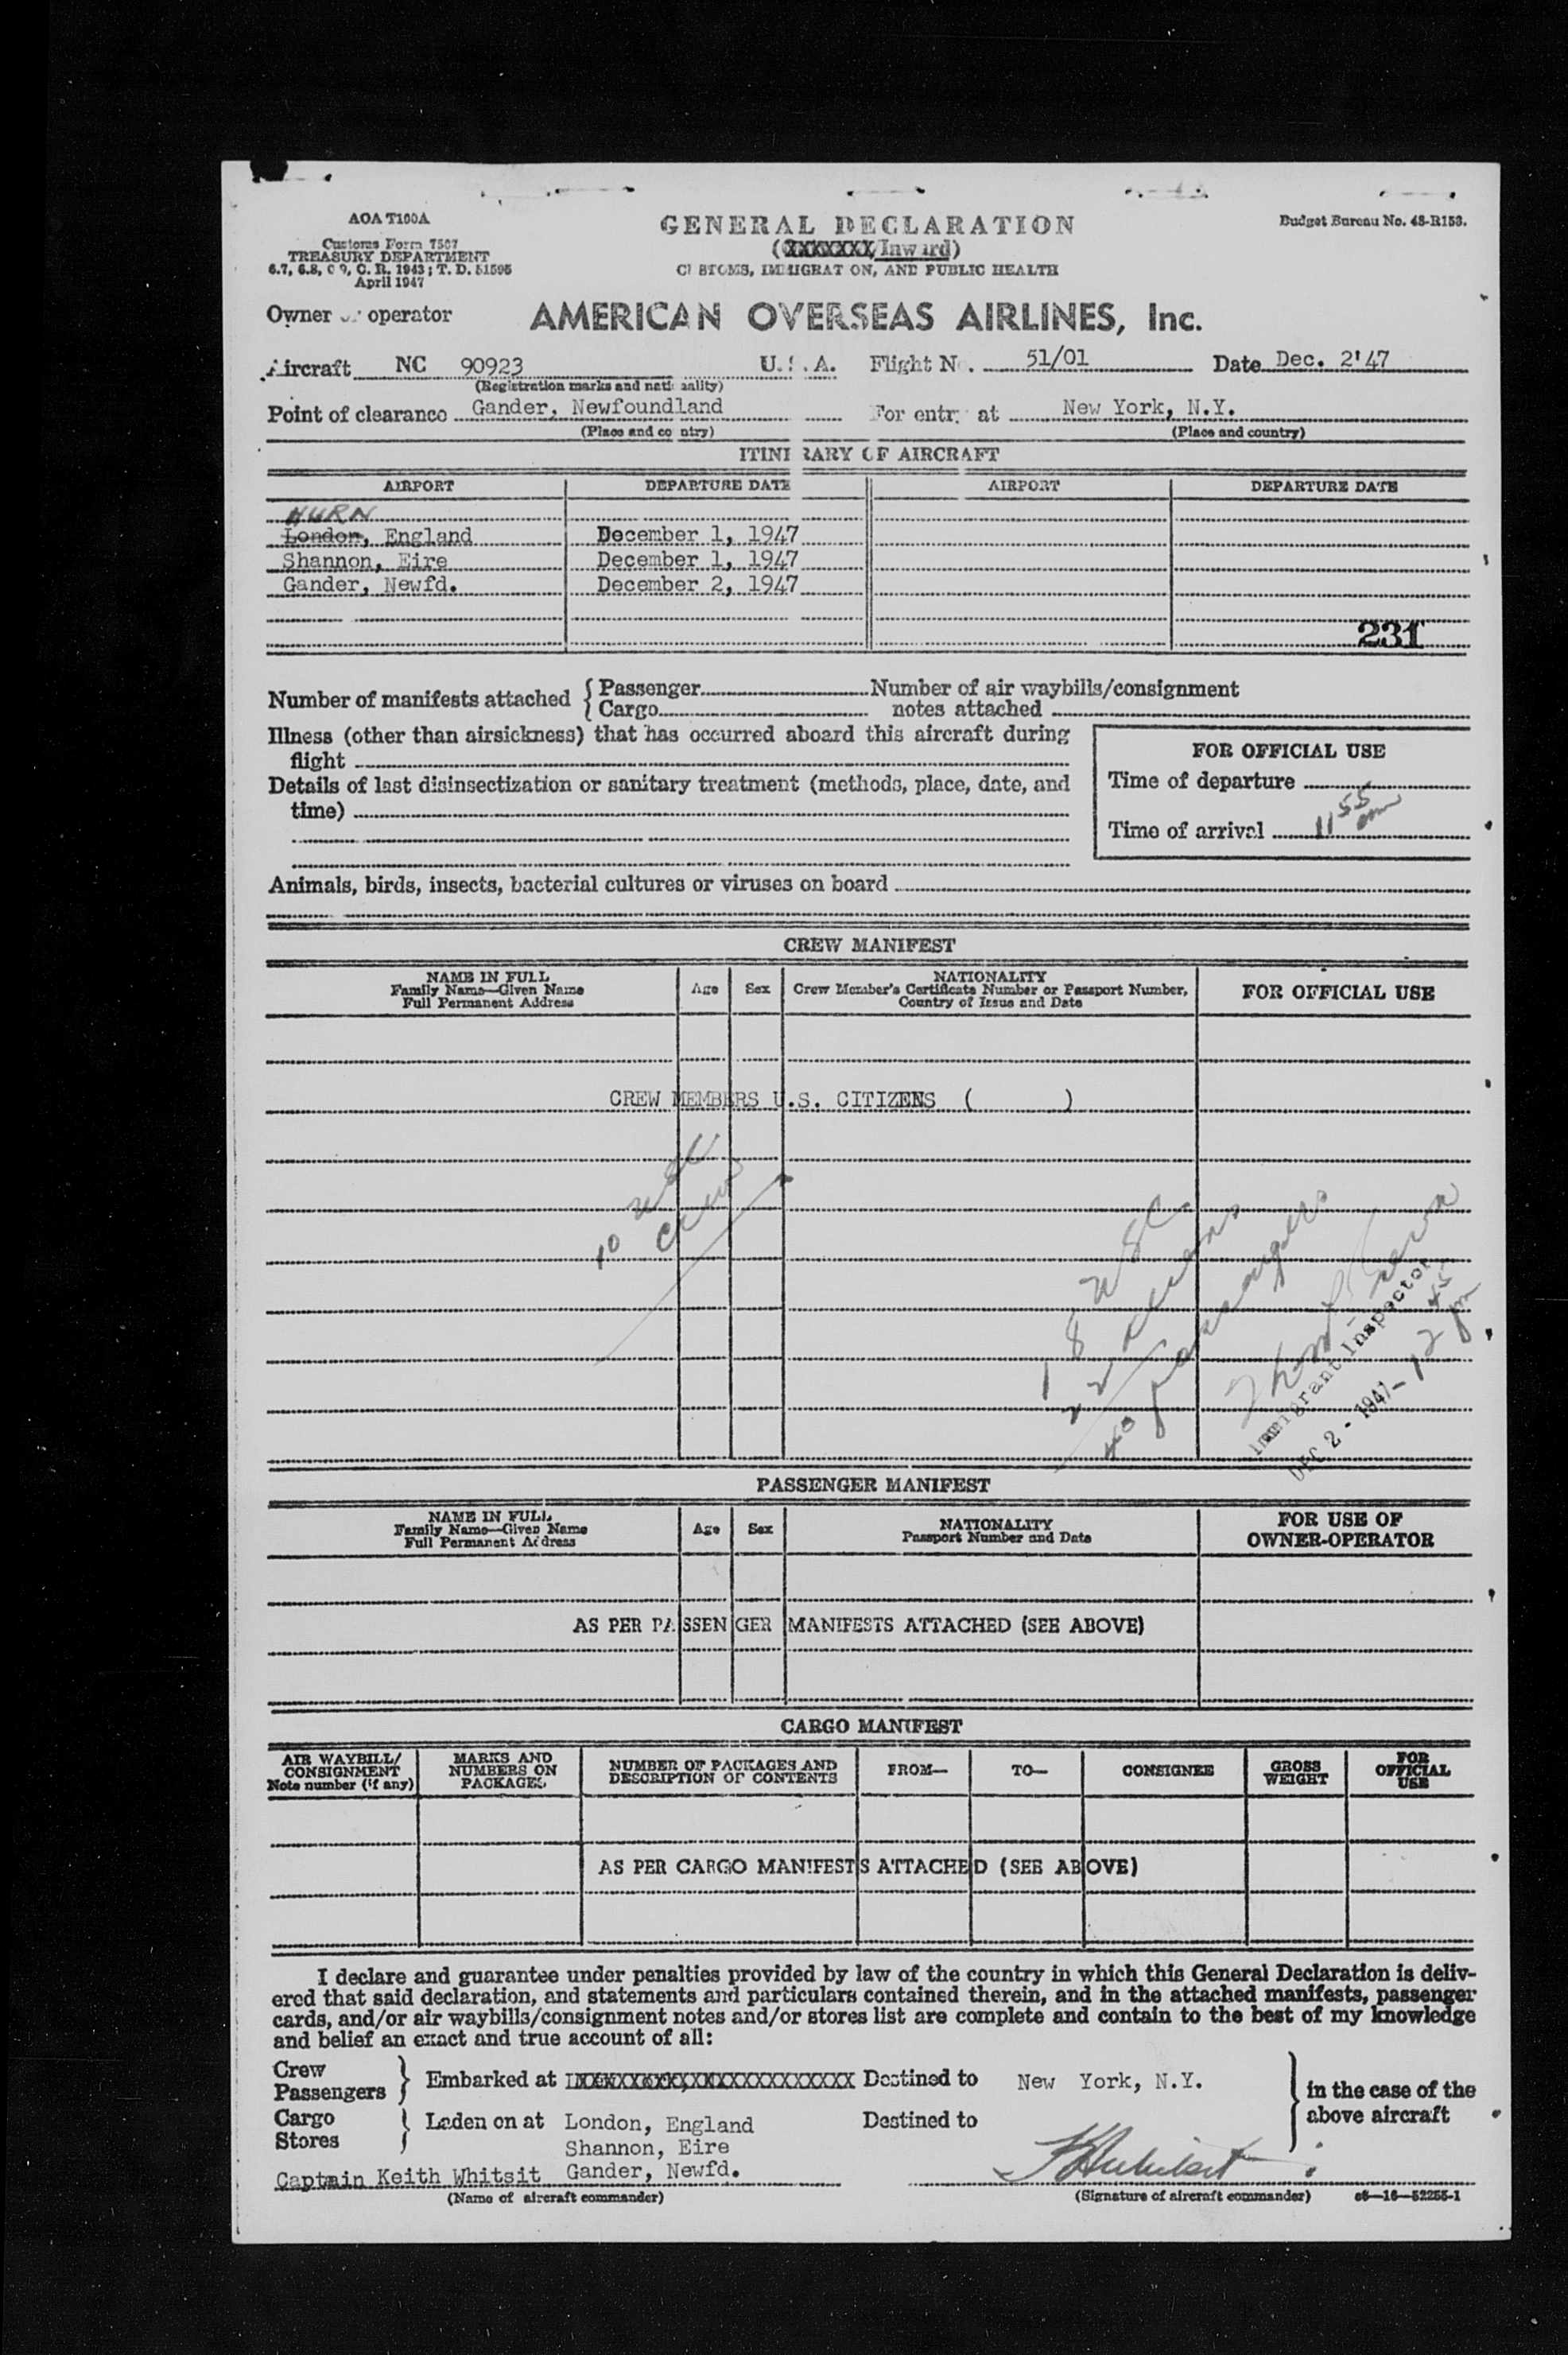 AOA T100A
Customs Form 7507
TREASURY DEPARTMENT
6.7, 6.8, 6.9, C. R. 1943; T. D. 51595
April 1947
GENERAL DECLARATION
(XXXXXXX/Inward)
CUSTOMS, IMMIGRATION, AND PUBLIC HEALTH
Budget Bureau No. 48-R153.
Owner or operator AMERICAN OVERSEAS AIRLINES, Inc.
Aircraft NC 90923 U.S.A. Flight No. 51/01 Date Dec. 2'47
(Registration marks and nationality)
Point of clearance Gander, Newfoundland For entry at New York, N.Y.
(Place and country) (Place and country)
ITINERARY OF AIRCRAFT
AIRPORT DEPARTURE DATE AIRPORT DEPARTURE DATE
HURN
London, England December 1, 1947
Shannon, Eire December 1, 1947
Gander, Newfd. December 2, 1947
231
Number of manifests attached { Passenger Number of air waybills/consignment
Cargo notes attached
Illness (other than airsickness) that has occurred aboard this aircraft during
flight
Details of last disinsectization or sanitary treatment (methods, place, date, and
time)
FOR OFFICIAL USE
Time of departure
Time of arrival 11 55 am
Animals, birds, insects, bacterial cultures or viruses on board
CREW MANIFEST
NAME IN FULL
Family Name—Given Name
Full Permanent Address
Age Sex
NATIONALITY
Crew Member's Certificate Number or Passport Number,
Country of Issue and Date
FOR OFFICIAL USE
CREW MEMBERS U.S. CITIZENS ( )
10 USC
Crew
18 USC
22 aliens
40 passengers
Immigrant Inspector
DEC 2 - 1947 - 12 45 pm
PASSENGER MANIFEST
NAME IN FULL
Family Name—Given Name
Full Permanent Address
Age Sex
NATIONALITY
Passport Number and Date
FOR USE OF
OWNER-OPERATOR
AS PER PASSENGER MANIFESTS ATTACHED (SEE ABOVE)
CARGO MANIFEST
AIR WAYBILL/
CONSIGNMENT
Note number (if any)
MARKS AND
NUMBERS ON
PACKAGES
NUMBER OF PACKAGES AND
DESCRIPTION OF CONTENTS
FROM—
TO—
CONSIGNEE
GROSS
WEIGHT
FOR
OFFICIAL
USE
AS PER CARGO MANIFESTS ATTACHED (SEE ABOVE)
I declare and guarantee under penalties provided by law of the country in which this General Declaration is deliv-
ered that said declaration, and statements and particulars contained therein, and in the attached manifests, passenger
cards, and/or air waybills/consignment notes and/or stores list are complete and contain to the best of my knowledge
and belief an exact and true account of all:
Crew
Passengers } Embarked at XXXXXXXXXXXXXXXXXXXXXXX Destined to New York, N.Y. } in the case of the
Cargo
Stores } Laden on at London, England Destined to above aircraft
Shannon, Eire
Captain Keith Whitsit Gander, Newfd.
(Name of aircraft commander) (Signature of aircraft commander) c6—16—52255-1